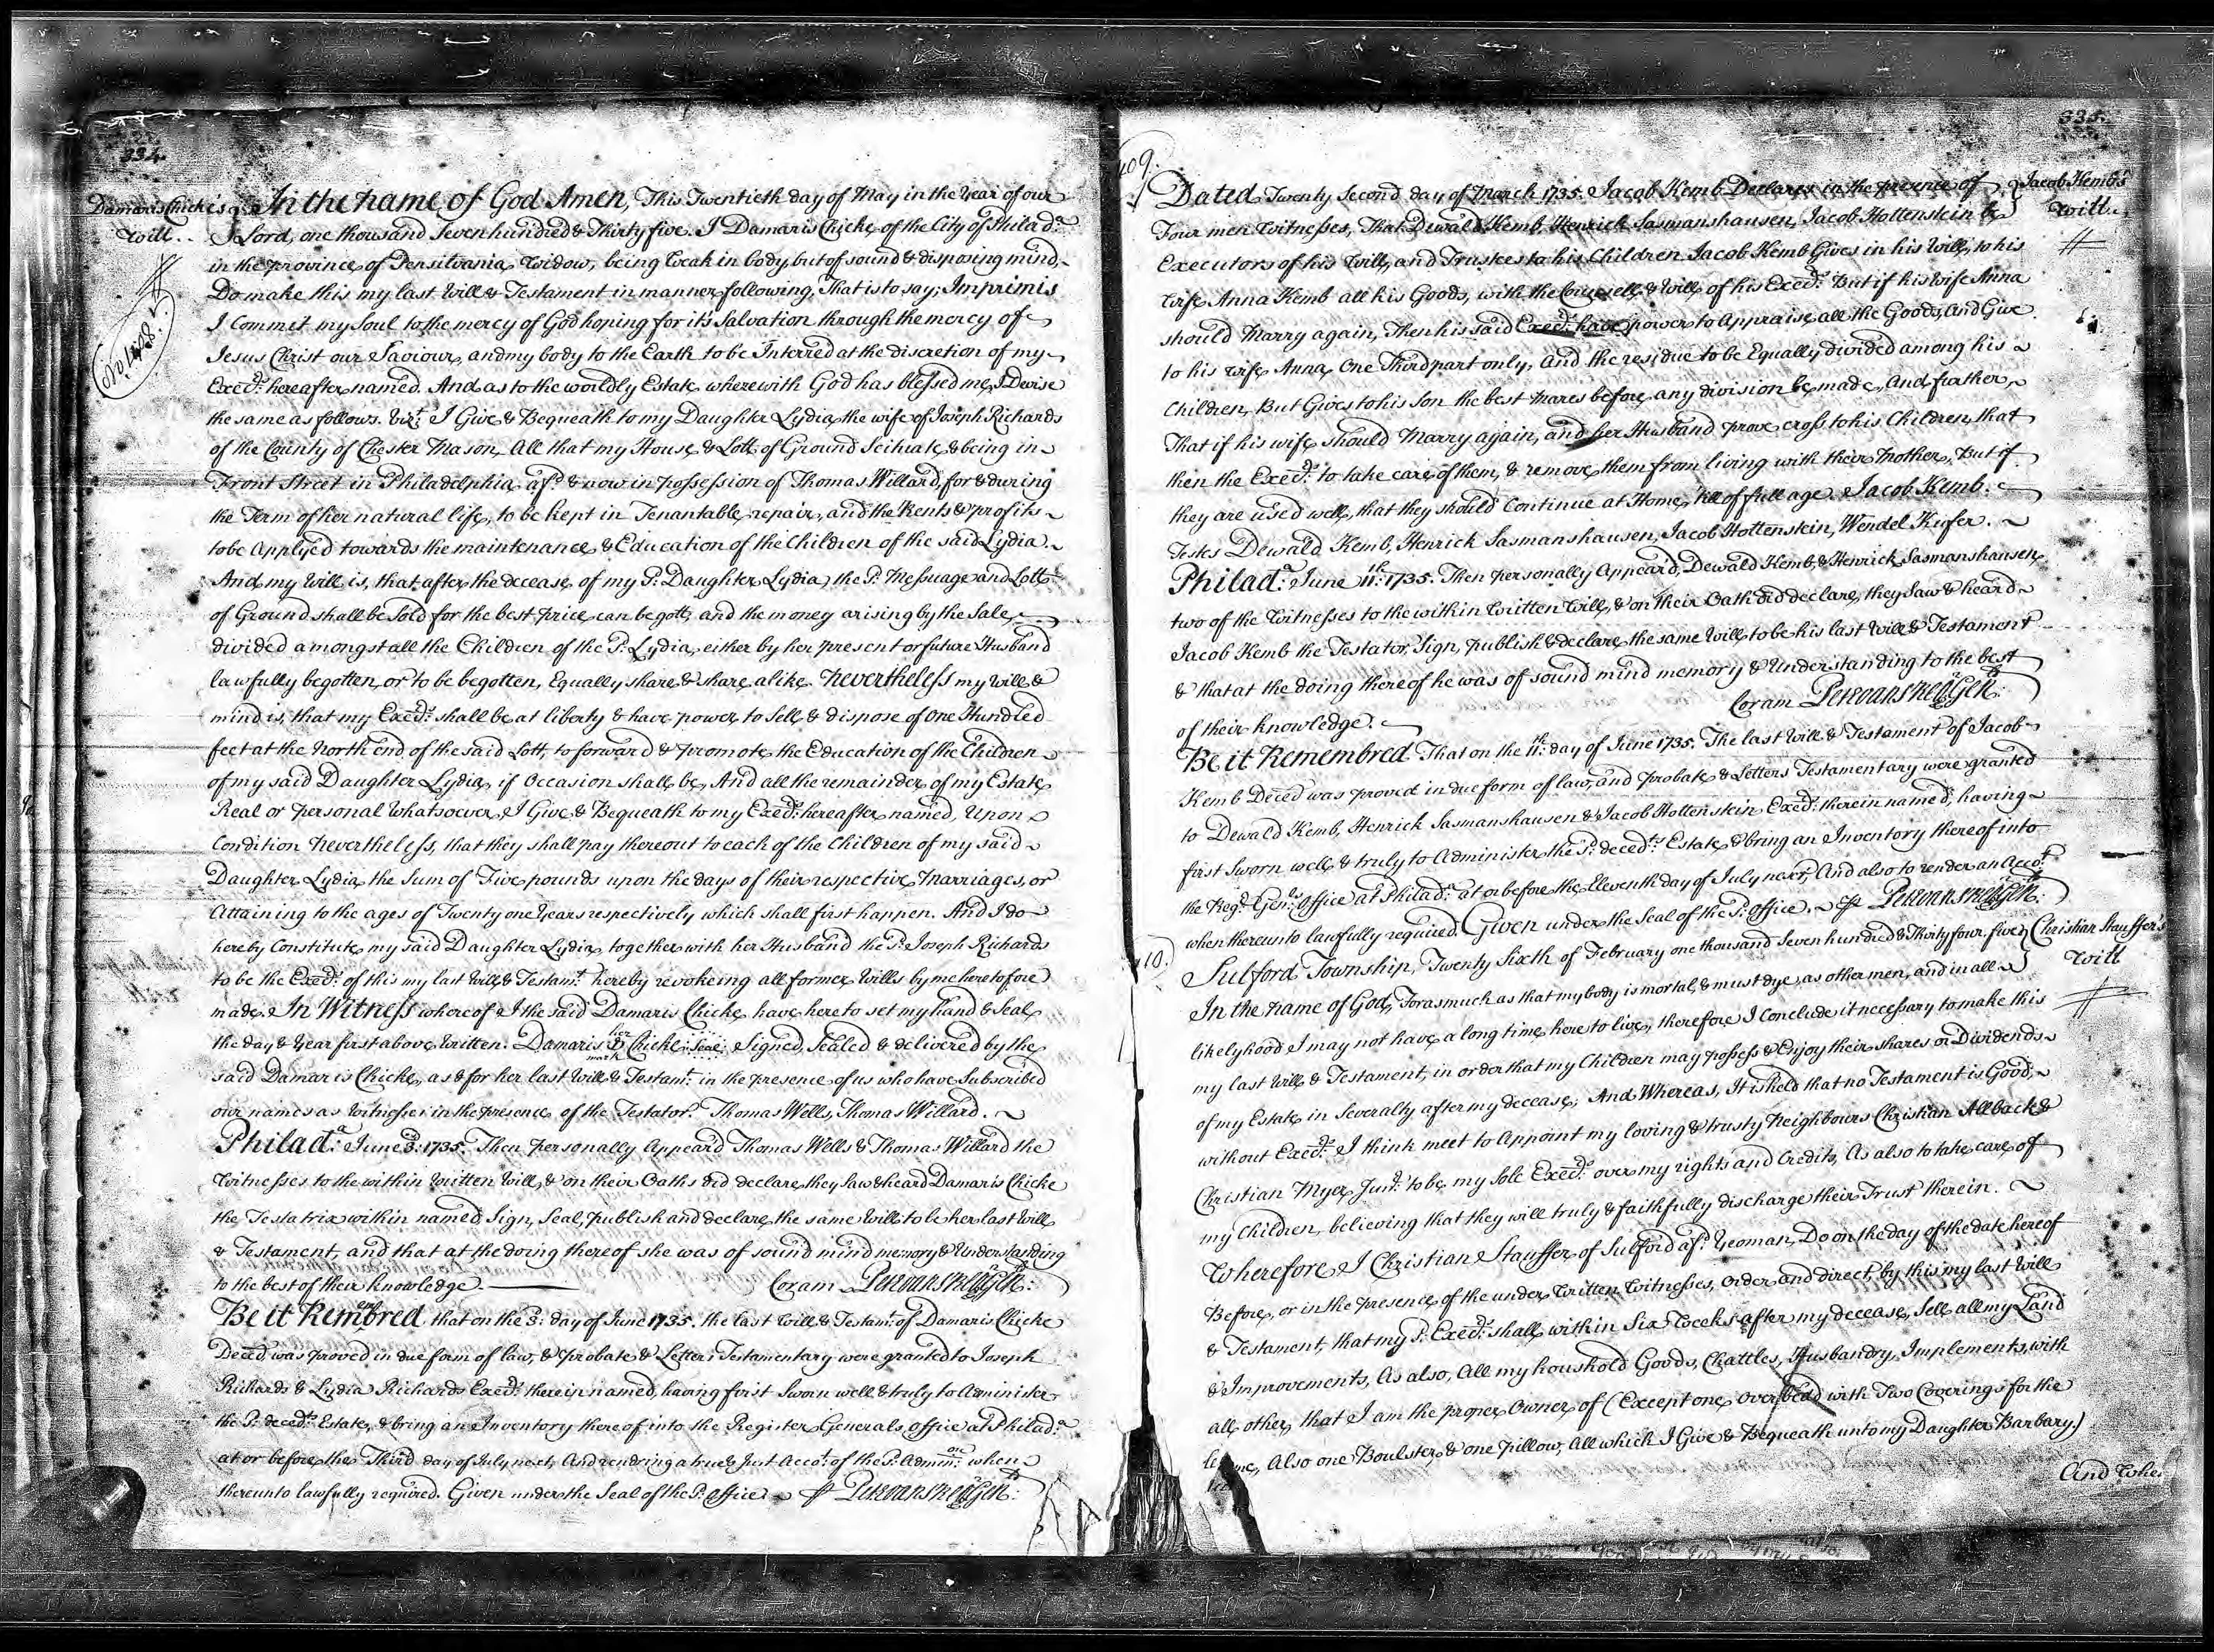 334.
Damaris Chicke's
Will..
No. 408.
In the Name of God Amen, This Twentieth day of May in the Year of our
Lord, one thousand Seven hundred & Thirty five. I Damaris Chicke of the City of Philad.a
in the Province of Pensilvania, Widow, being Weak in body, but of sound & disposing mind,
Do make this my last Will & Testament in manner following, That is to say; Imprimis
I Commit my Soul to the mercy of God hoping for it's Salvation through the mercy of
Jesus Christ our Saviour, and my body to the Earth to be Interred at the discretion of my
Exec.rs hereafter named. And as to the worldly Estate wherewith God has blessed me, I Devise
the same as follows. Viz.t I Give & Bequeath to my Daughter Lydia, the wife of Joseph Richards
of the County of Chester Mason, All that my House & Lott of Ground Scituate & being in
Front Street in Philadelphia af.d & now in possession of Thomas Willard, for & during
the Term of her natural life, to be kept in Tenantable repair, and the Rents & profits
to be Applyed towards the maintenance & Education of the Children of the said Lydia.
And my Will is, that after the decease of my S.d Daughter Lydia, the S.d Messuage and Lott
of Ground shall be Sold for the best price can be gott, and the money arising by the Sale,
divided amongst all the Children of the S.d Lydia, either by her present or future Husband
lawfully begotten, or to be begotten, Equally share & share alike. Nevertheless my Will &
mind is, that my Exec.rs shall be at liberty & have power to Sell & dispose of One Hundred
feet at the North end of the said Lott, to forward & promote the Education of the Children
of my said Daughter Lydia, if Occasion shall be, And all the remainder of my Estate
Real or Personal Whatsoever, I Give & Bequeath to my Exec.rs hereafter named, Upon
Condition Nevertheless, that they shall pay thereout to each of the Children of my said
Daughter Lydia the Sum of Five pounds upon the days of their respective Marriages, or
Attaining to the ages of Twenty one Years respectively which shall first happen. And I do
hereby Constitute my said Daughter Lydia together with her Husband the S.d Joseph Richards
to be the Exec.rs of this my last Will & Testam.t hereby revokeing all former Wills by me heretofore
made. In Witness whereof I the said Damaris Chicke have hereto set my hand & Seal
the day & Year first above written. Damaris her mark Chicke Seal Signed, Sealed & delivered by the
said Damaris Chicke, as & for her last Will & Testam.t in the presence of us who have Subscribed
our names as Witnesses in the presence of the Testator. Thomas Wells, Thomas Willard.
Philad.a June 3.d 1735. Then personally Appeard Thomas Wells & Thomas Willard the
Witnesses to the within written Will, & on their Oaths did declare, they Saw & heard Damaris Chicke
the Testatrix within named, Sign, Seal, publish and declare the same Will to be her last Will
& Testament, and that at the doing thereof she was of sound mind memory & Understanding
to the best of their knowledge. Coram Pet: Evans Reg.r Gen.ll
Be it Remembred that on the 3.d day of June 1735. the last Will & Testam.t of Damaris Chicke
Deced was proved in due form of law, & Probate & Letters Testamentary were granted to Joseph
Richards & Lydia Richards Exec.rs therein named, having first Sworn well & truly to Administer
the S.d deced.ts Estate, & bring an Inventory thereof into the Register Generals Office at Philad.a
at or before the Third day of July next, And rendring a true & Just Acco.t of the S.d Admin.on when
thereunto lawfully required. Given under the Seal of the S.d Office. P Pet: Evans Reg.r Gen.ll
335.
Jacob Kemb's
Will.
409.
Dated Twenty Second day of March 1735. Jacob Kemb Declares in the presence of
Four men Witnesses, That Dewald Kemb, Henrick Sasmanshausen, Jacob Hottenstein be
Executors of his Will, and Trustees to his Children. Jacob Kemb Gives in his Will, to his
Wife Anna Kemb all his Goods, with the Councell & Will of his Exec.rs But if his Wife Anna
should Marry again, Then his said Exec.rs have power to Appraise all the Goods, And Give
to his Wife Anna, One Third part only, And the residue to be Equally divided among his
Children, But Gives to his Son the best Mares before any division be made, And further,
That if his wife should Marry again, and her Husband prove cross to his Children, that
then the Exec.rs to take care of them, & remove them from living with their Mother, But if
they are used well, that they should Continue at Home, till of full age. Jacob Kemb.
Testes Dewald Kemb, Henrick Sasmanshausen, Jacob Hottenstein, Wendel Kiefer.
Philad.a June 11.th 1735. Then personally Appeard, Dewald Kemb, & Henrick Sasmanshausen,
two of the Witnesses to the within written Will, & on their Oath did declare, they Saw & heard
Jacob Kemb the Testator, Sign, publish & declare the same Will to be his last Will & Testament
& that at the doing thereof he was of sound mind memory & Understanding to the best
of their knowledge. Coram Pet: Evans Reg.r Gen.ll
Be it Remembred That on the 11.th day of June 1735. The last Will & Testament of Jacob
Kemb Deced was proved in due form of law, and Probate & Letters Testamentary were granted
to Dewald Kemb, Henrick Sasmanshausen & Jacob Hottenstein Exec.rs therein named, having
first Sworn well & truly to Administer the S.d deced.ts Estate & bring an Inventory thereof into
the Reg.r Gen.ls Office at Philad.a at or before the Eleventh day of July next, And also to render an Acco.t
when thereunto lawfully required. Given under the Seal of the S.d Office. P Pet: Evans Reg.r Gen.ll
410.
Christian Stauffer's
Will
Sulford Township, Twenty Sixth of February one thousand Seven hundred & Thirty four, five
In the Name of God, Forasmuch as that my body is mortal, & must dye, as other men, and in all
likelyhood I may not have a long time here to live, therefore I Conclude it necessary to make this
my last Will & Testament, in order that my Children may possess & Enjoy their shares or Dividends
of my Estate in Severalty after my decease; And Whereas, It is held that no Testament is Good,
without Exec.rs I think meet to Appoint my loving & trusty Neighbours Christian Allback &
Christian Myer Jun.r to be my Sole Exec.rs over my rights and Credits, As also to take care of
my Children, believing that they will truly & faithfully discharge their Trust therein.
Wherefore I Christian Stauffer of Sulford af.d Yeoman, Do on the day of the date hereof
Before, or in the presence of the under Written Witnesses, order and direct by this my last Will
& Testament, that my S.d Exec.rs shall within Six Weeks after my decease, Sell all my Land
& Improvements, As also, All my houshold Goods, Chattles, Husbandry, Implements, with
all other, that I am the proper Owner of (Except one Over bead with Two Coverings for the
same, Also one Boulster & one Pillow, All which I Give & Bequeath unto my Daughter Barbary)
And Whe